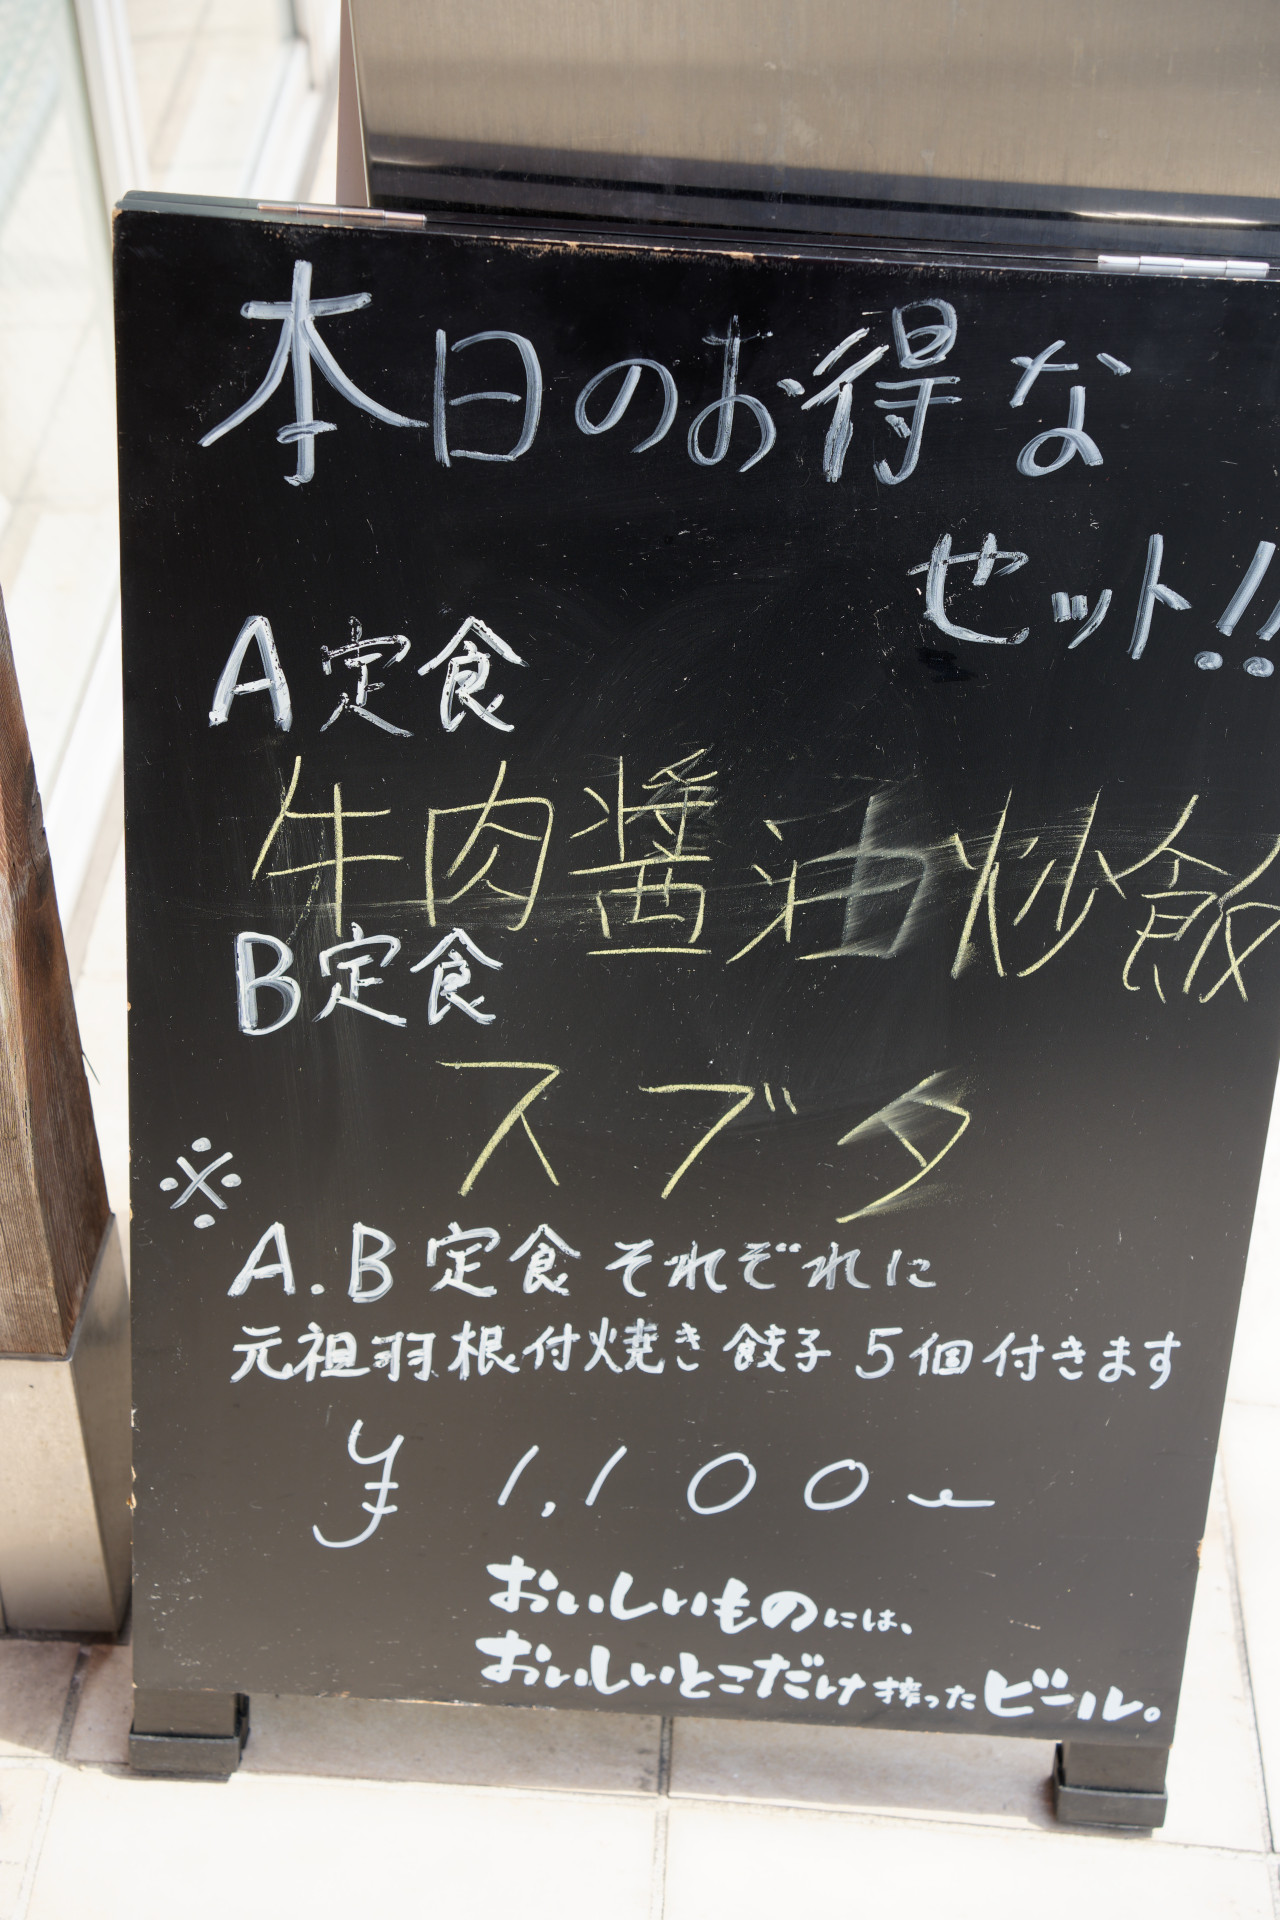 本日のお得な
セット!!
A定食
牛肉醤油炒飯
B定食
スブタ
※
A.B定食それぞれに
元祖羽根付焼き餃子5個付きます
¥1,100
おいしいものには、
おいしいとこだけ搾ったビール。